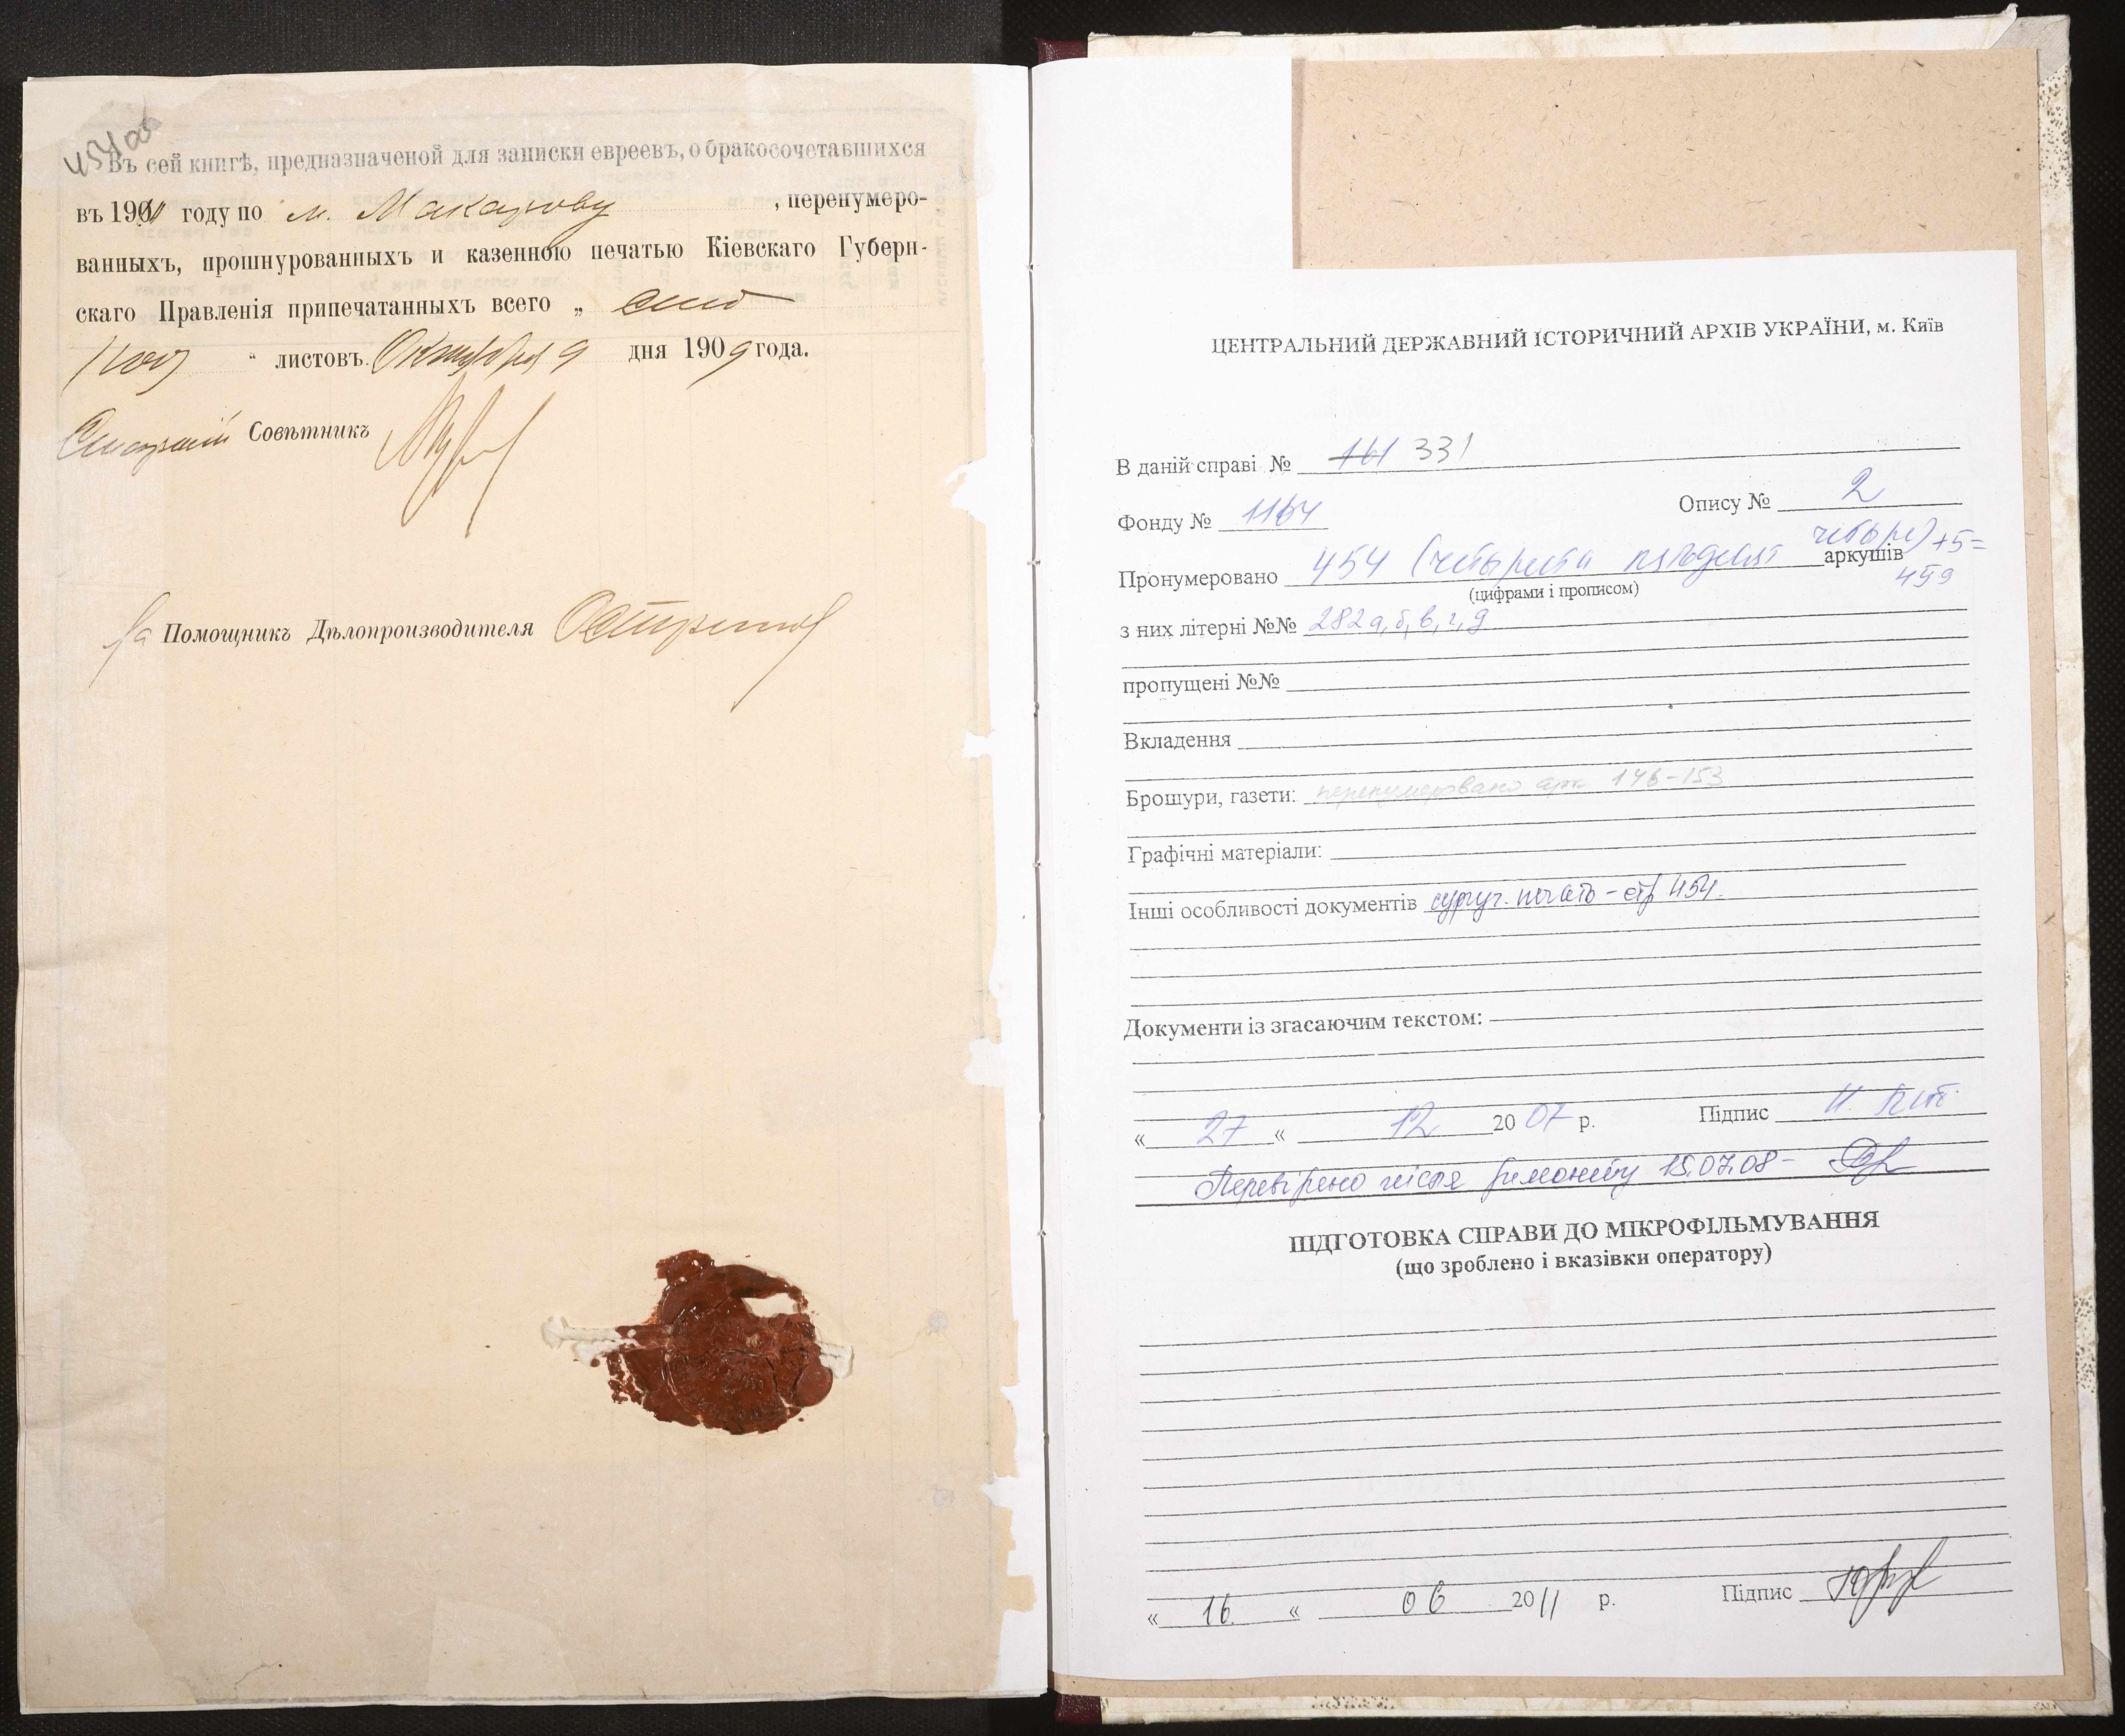 454об
Въ сей книгѣ, предназначеной для записки евреевъ, о бракосочетавшихся
въ 1901 году по м. Макарову , перенумеро-
ванныхъ, прошнурованныхъ и казенною печатью Кіевскаго Губерн-
скаго Правленія припечатанныхъ всего „
/100/ “ листовъ. Октября 9 дня 1909 года.
Старшій Совѣтникъ
За Помощникъ Дѣлопроизводителя
ЦЕНТРАЛЬНИЙ ДЕРЖАВНИЙ ІСТОРИЧНИЙ АРХІВ УКРАЇНИ, м. Київ
В даній справі № 161 331
Фонду № 1164 Опису № 2
Пронумеровано 454 (четыреста пятьдесят четыре) +5= аркушів
459
(цифрами і прописом)
з них літерні №№ 282а,б,в,г,д
пропущені №№
Вкладення
Брошури, газети: перенумеровано арк. 146-153
Графічні матеріали:
Інші особливості документів сургуч. печать - стр 454.
Документи із згасаючим текстом:
« 27 « 12 2007 р. Підпис
Перевірено після ремонту 15.07.08 -
ПІДГОТОВКА СПРАВИ ДО МІКРОФІЛЬМУВАННЯ
(що зроблено і вказівки оператору)
« 16. « 06 2011 р. Підпис